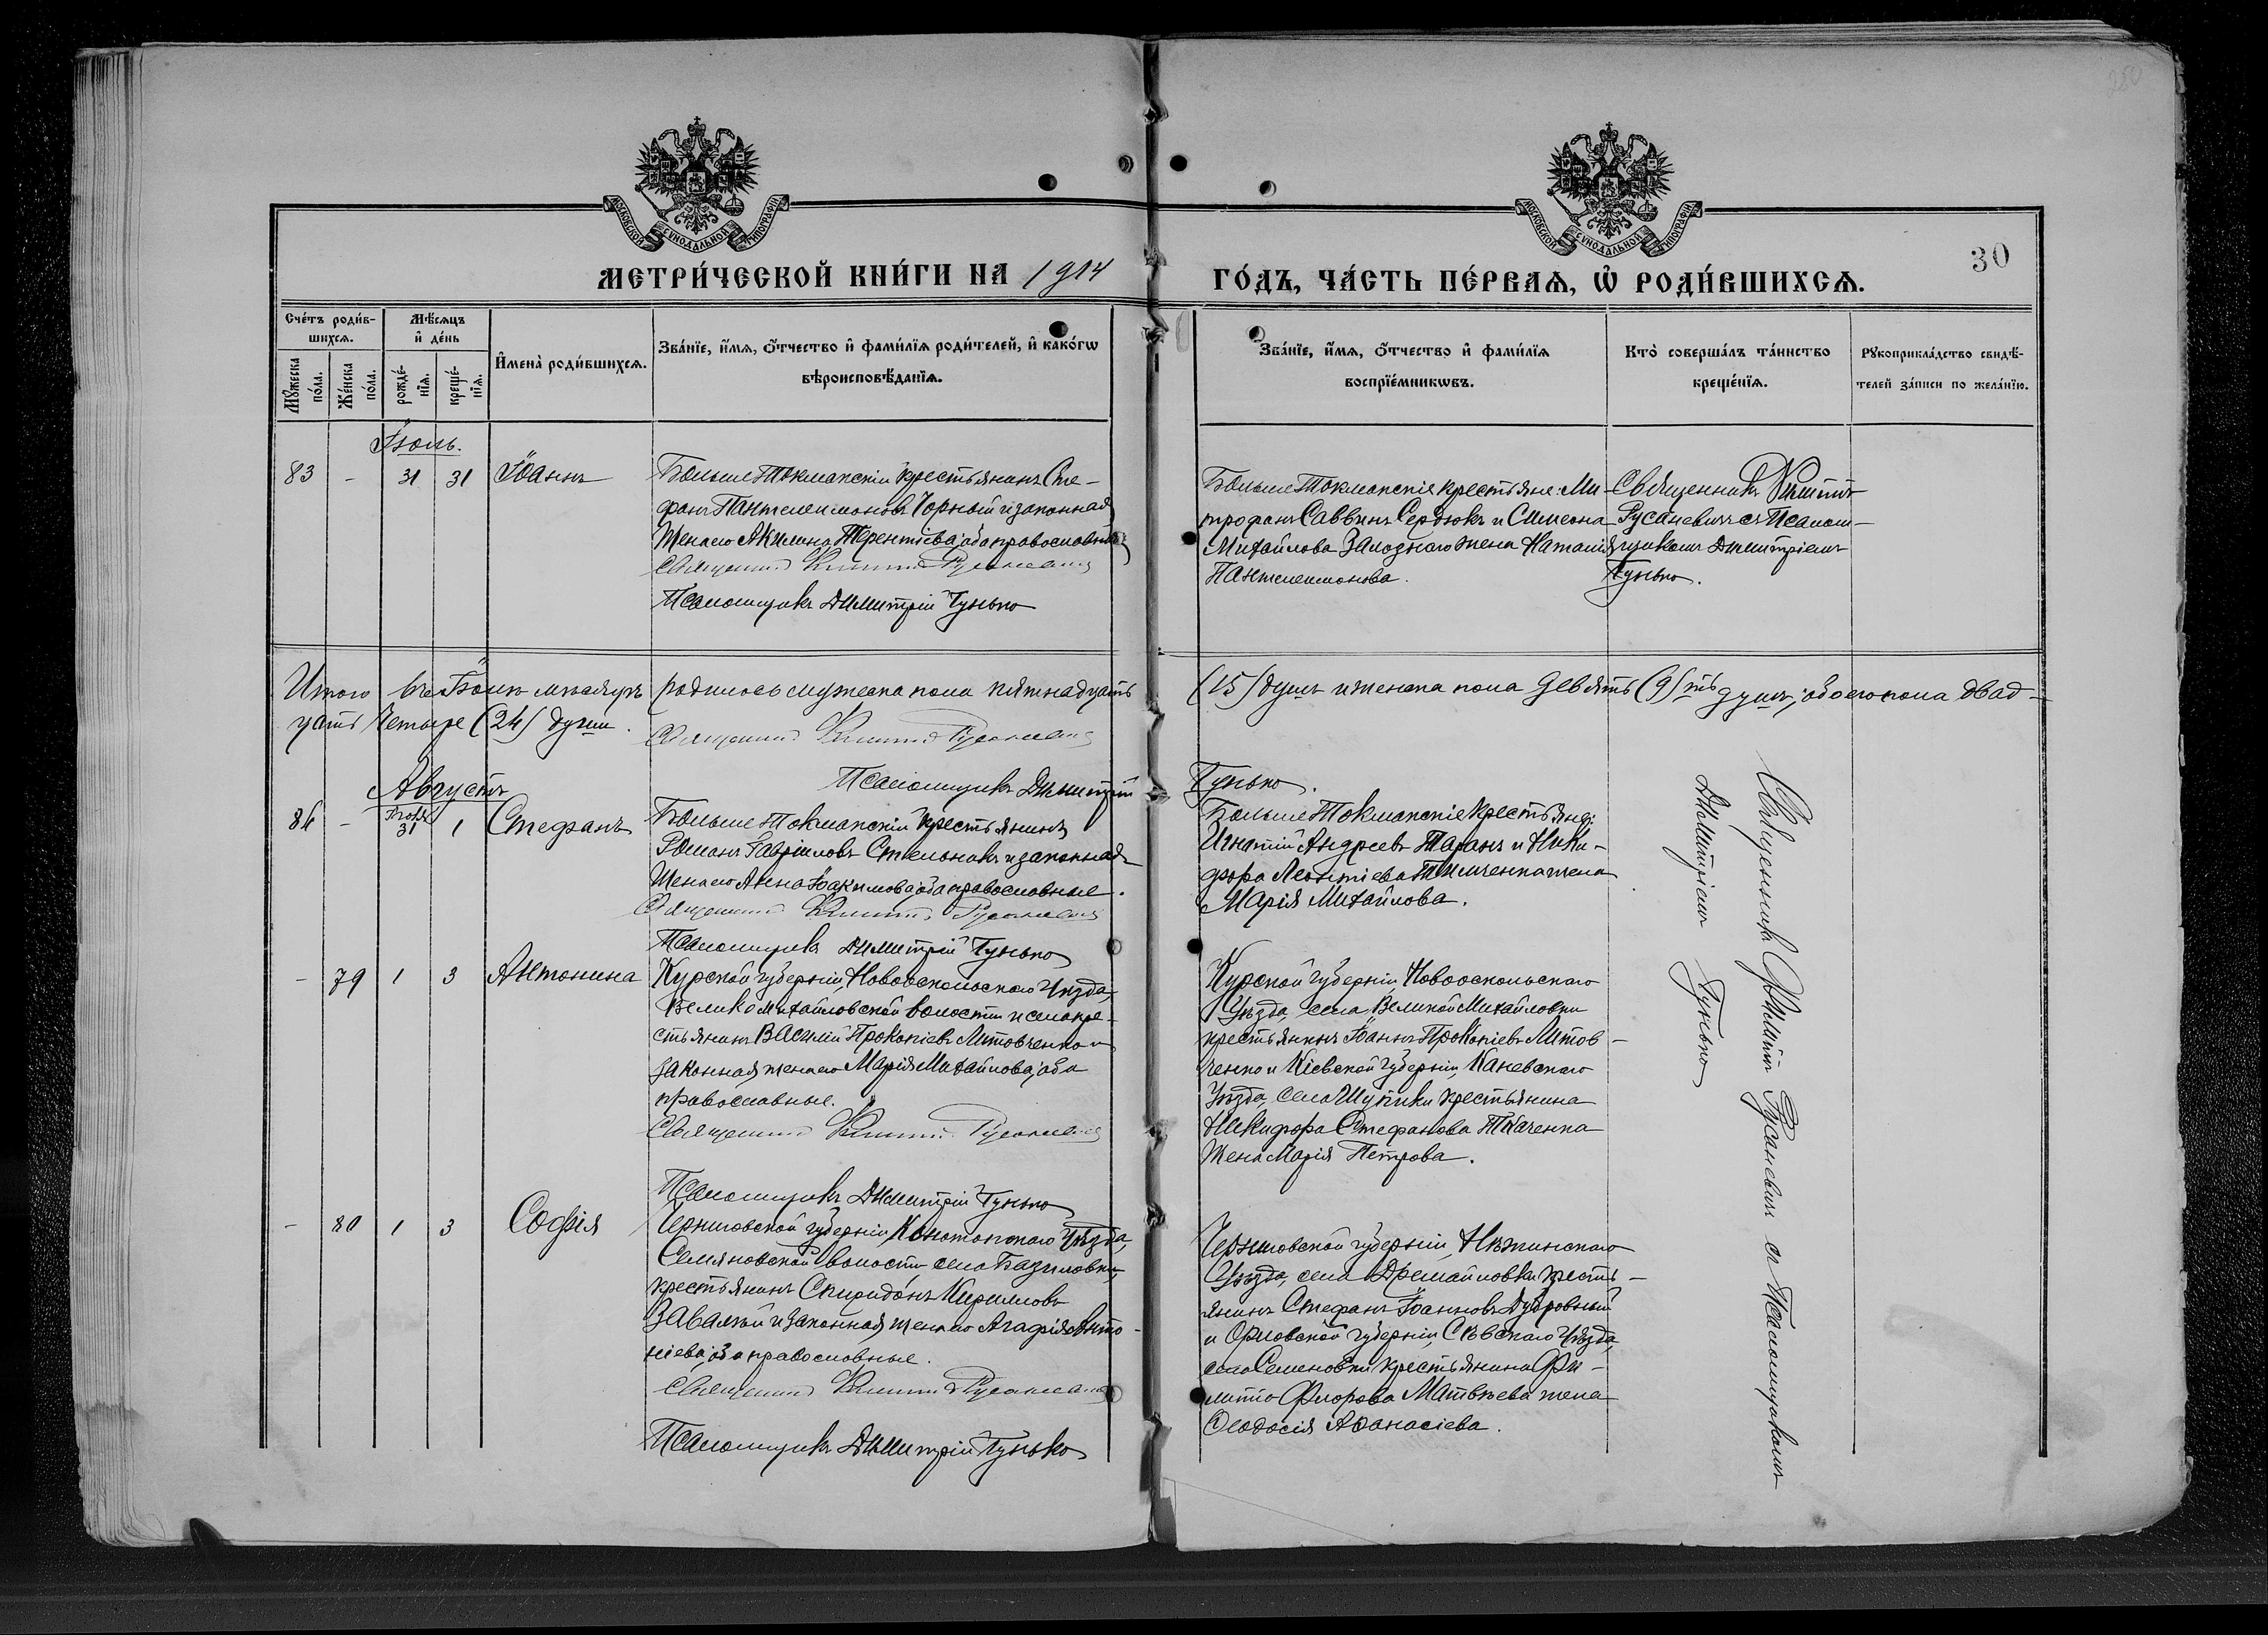 250
МОСКОВСКОЙ СУНОДАЛЬНОЙ ТИПОГРАФІИ
МОСКОВСКОЙ СУНОДАЛЬНОЙ ТИПОГРАФІИ
30
МЕТРИ́ЧЕСКОЙ КНИ́ГИ НА 1914 ГО́ДЪ, ЧА́СТЬ ПЕ́РВАѦ, Ѡ҆ РОДИ́ВШИХСѦ.
Сче́тъ роди́в-
шихсѧ.
Мꙋ́жеска по́ла.
Же́нска по́ла.
Мѣ́сѧцъ
и҆ де́нь
рожде́-
нїѧ.
креще́-
нїѧ.
И҆мена̀ роди́вшихсѧ.
Зва́нїе, и҆́мѧ, ѻ҆́тчество и҆ фами́лїѧ роди́телей, и҆ како́гѡ
вѣроисповѣ́данїѧ.
Зва́нїе, и҆́мѧ, ѻ҆́тчество и҆ фами́лїѧ
воспрїе́мникѡвъ.
Кто̀ соверша́лъ та́инство
креще́нїѧ.
Рꙋкоприкла́дство свидѣ́-
телей за́писи по жела́нїю.
Іюль.
83 - 31 31 Іоаннъ
БольшеТокмакскій крестьянинъ Сте-
фанъ Пантелеимоновъ Чорный и законная
жена его Акилина Терентіева, оба православные
Священникъ Филиппъ Русаневичъ
Псаломщикъ Димитрій Гунько
БольшеТокмакскіе крестьяне: Ми-
трофанъ Саввинъ Сердюкъ и Симеона
Михайлова Залознаго жена Наталія
Пантелеимонова.
Священникъ Филиппъ
Русаневичъ съ Псалом-
щикомъ Димитріемъ
Гунько.
Итого въ Іюлѣ мѣсяцѣ родилось мужеска пола пятнадцать (15) душъ и женска пола девять (9) душъ, обоего пола двад-
цать четыре (24) души.
Священникъ Филиппъ Русаневичъ
Псаломщикъ Димитрій Гунько.
Августъ
84 - Іюля 31 1 Стефанъ
БольшеТокмакскій крестьянинъ
Романъ Гавріиловъ Стельмахъ и законная
жена его Анна Іоакимова, оба православные.
Священникъ Филиппъ Русаневичъ
Псаломщикъ Димитрій Гунько
БольшеТокмакскіе крестьяне:
Игнатій Андреевъ Таранъ и Ники-
фора Леонтіева Тимченка жена
Марія Михайлова.
Священникъ Филиппъ Русаневичъ съ Псаломщикомъ
Димитріемъ Гунько
- 79 1 3 Антонина
Курской губерніи, Новооскольскаго уѣзда,
Великомихайловской волости и села кре-
стьянинъ Василій Прокопіевъ Литовченко и
законная жена его Марія Михайлова, оба
православные.
Священникъ Филиппъ Русаневичъ
Псаломщикъ Димитрій Гунько
Курской губерніи, Новооскольскаго
уѣзда, села Великой Михайловки
крестьянинъ Іоаннъ Прокопіевъ Литов-
ченко и Кіевской губерніи, Каневскаго
уѣзда, села Шупики крестьянина
Никифора Стефанова Ткаченка
жена Марія Петрова.
- 80 1 3 Софія
Черниговской губерніи, Конотопскаго уѣзда,
волости села Базиловки
крестьянинъ Спиридонъ Кирилловъ
Завалкой и законная жена его Агафія Анто-
ніева, оба православные.
Священникъ Филиппъ Русаневичъ
Псаломщикъ Димитрій Гунько
Черниговской губерніи, Нѣжинскаго
уѣзда, села Дремайловки кресть-
янинъ Стефанъ Іоанновъ Дубровный
и Орловской губерніи, Сѣвскаго уѣзда,
села Семеновки крестьянина Фи-
липпа Флорова Матвѣева жена
Ѳеодосія Аѳанасіева.